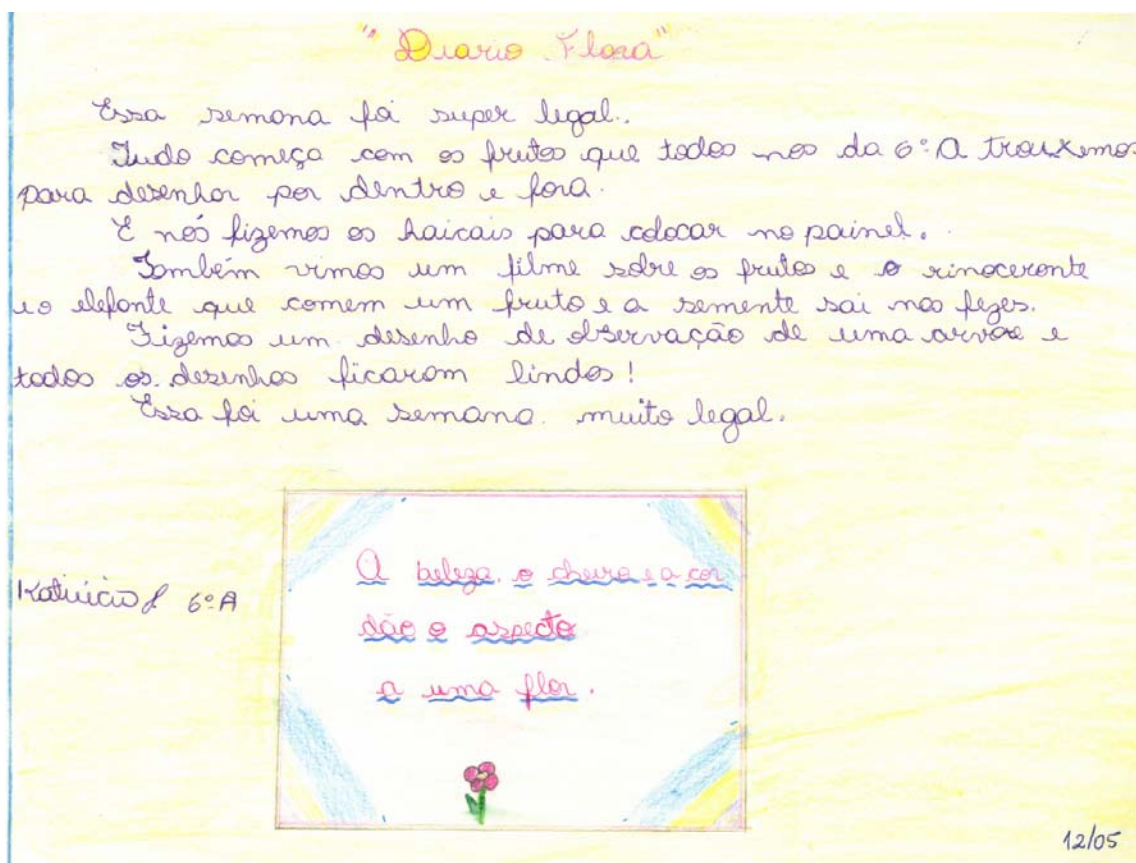 "Diario Flora"
Essa semana foi super legal.
Tudo começa com os frutos que todos nos da 6ª A trouxemos
para desenhar por dentro e fora.
E nós fizemos os haicais para colocar no painel.
Também vimos um filme sobre os frutos e o rinoceronte
e o elefante que comem um fruto e a semente sai nas fezes.
Fizemos um desenho de observação de uma arvore e
todos os dezenhos ficaram lindos!
Essa foi uma semana muito legal.
A beleza o cheiro e a cor
dão o aspecto
a uma flor.
6ª A
12/05